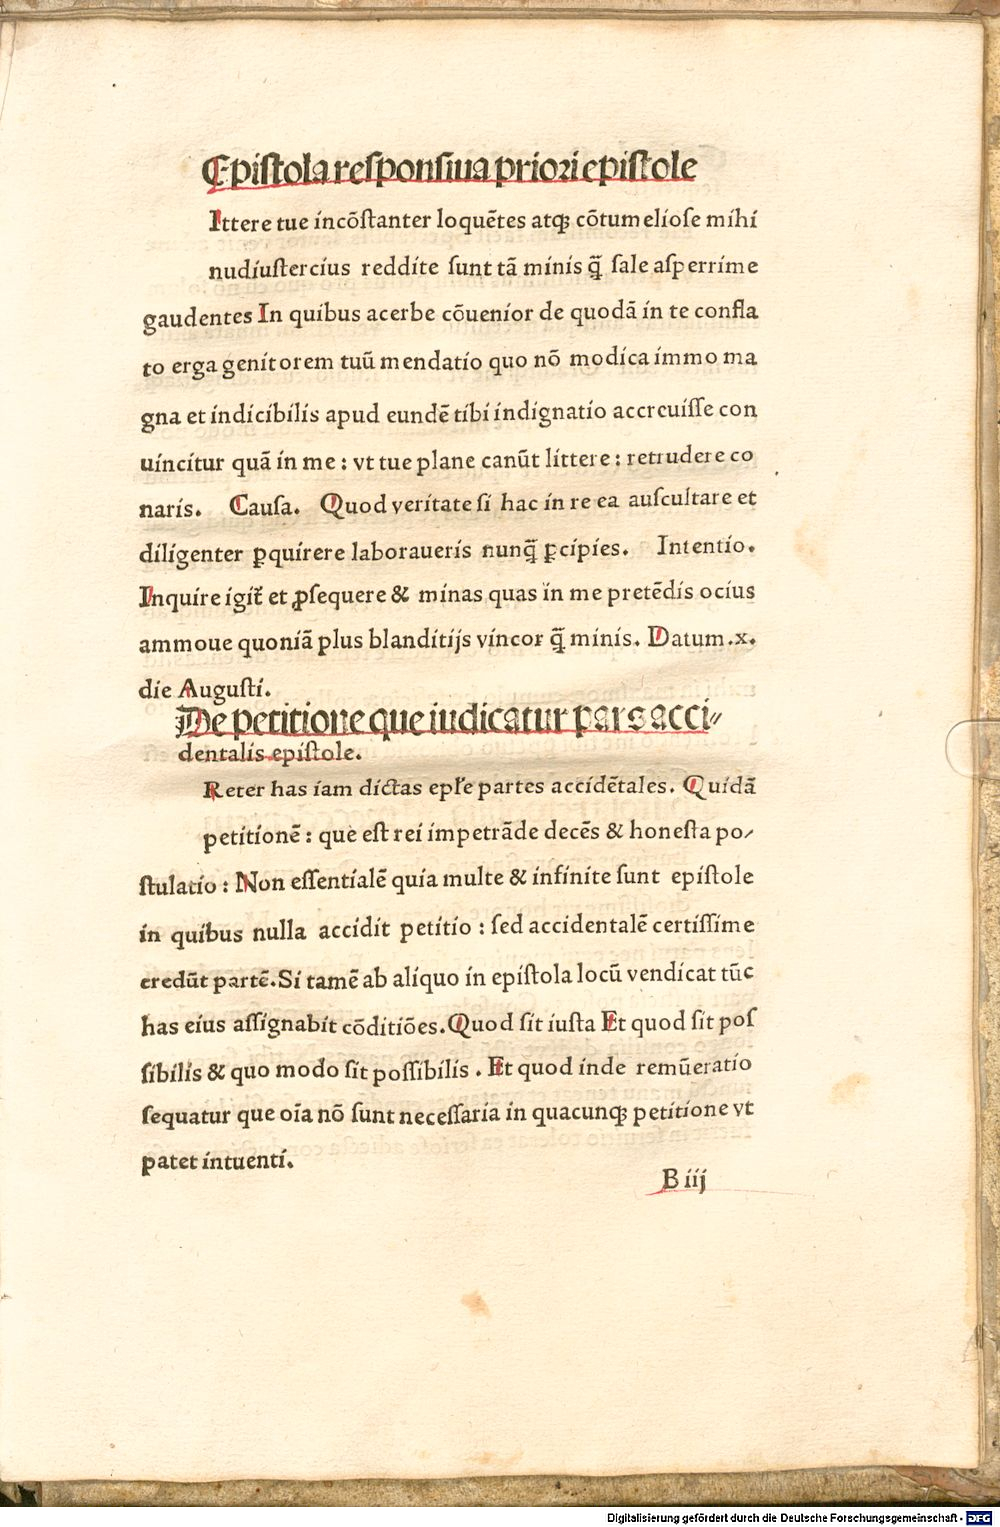 Epistola responsiua priori epistole
Ittere tue incōstanter loquētes atqꝫ cōtumeliose mihi
nudiustercius reddite sunt tā minis q̄̃ sale asperrime
gaudentes In quibus acerbe cōuenior de quodā in te confla
to erga genitorem tuū mendatio quo nō modica immo ma
gna et indicibilis apud eundē tibi indignatio accreuisse con
uincitur quā in me : vt tue plane canūt littere : retrudere co
naris. Causa. Quod veritate si hac in re ea auscultare et
diligenter ꝑquirere laboraueris nunq̄̃ ꝑcipies. Intentio.
Inquire igit̃ et ꝓsequere & minas quas in me pretēdis ocius
ammoue quoniā plus blanditijs vincor q̄̃ minis. Datum .x.
die Augusti.
De petitione que iudicatur pars acci⸗
dentalis epistole.
Reter has iam dictas epl̃e partes accidētales. Quidā
petitionē : que est rei impetrāde decēs & honesta po⸗
stulatio : Non essentialē quia multe & infinite sunt epistole
in quibus nulla accidit petitio : sed accidentalē certissime
credūt partē. Si tamē ab aliquo in epistola locū vendicat tūc
has eius assignabit cōditiōes. Quod sit iusta Et quod sit pos
sibilis & quo modo sit possibilis . Et quod inde remūeratio
sequatur que oīa nō sunt necessaria in quacunqꝫ petitione vt
patet intuenti.
B iij
Digitalisierung gefördert durch die Deutsche Forschungsgemeinschaft - DFG